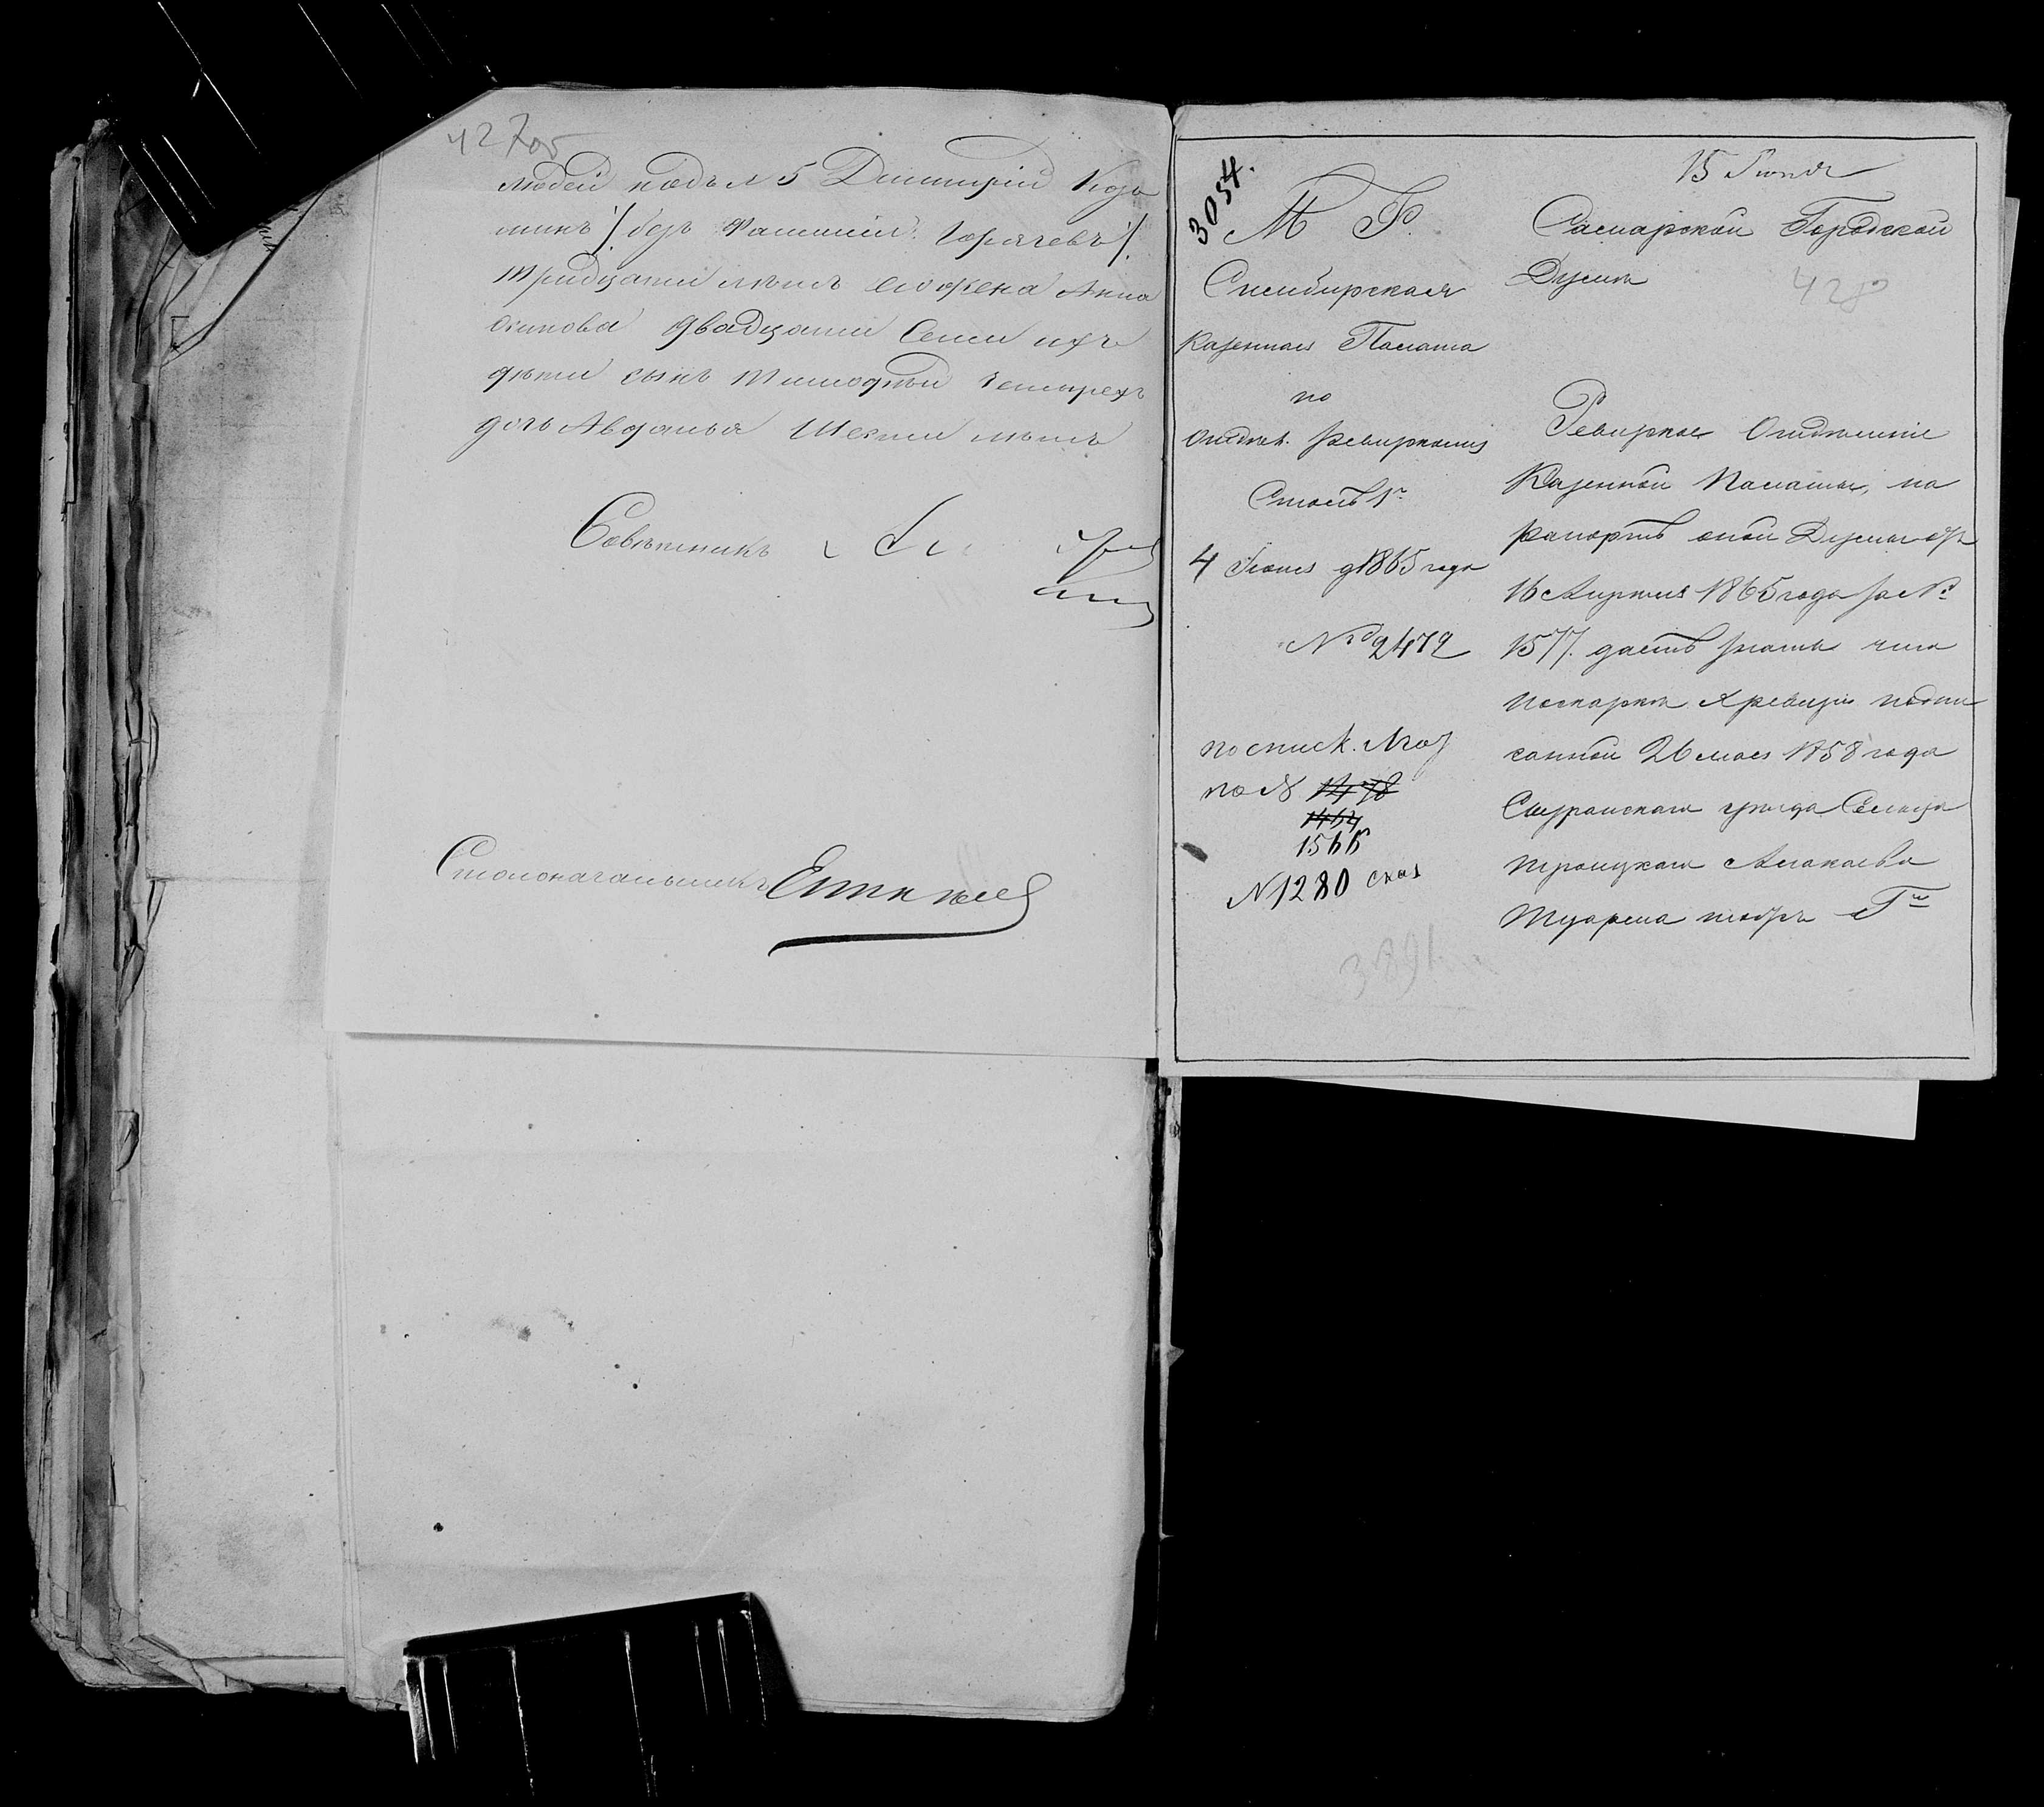 427об
людей подъ № 5 Дмитрій Козь
минъ /: безъ Фамиліи Горячевъ :/
тридцати лѣтъ его жена Анна
Осипова двадцати Семи ихъ
дѣти сынъ Тимофѣй Четырехъ
дочь Авдотья Шести лѣтъ
Совѣтникъ
Столоначальникъ
3054.
М. Ф.
Симбирская
Казенная Палата
по
Отдѣлен. Ревизскому
Столъ 1й
4 Іюня 1865 года
№ 2472
по списк.
по № 1478
1464
1566
№ 1280 сказ
3891
15 Іюня
Самарской Городской
Думѣ
428
Ревизское Отдѣленіе
Казенной Палаты, на
рапортъ оной Думы отъ
16 Апрѣля 1865 года за №
1577. даетъ знать что
по сказкѣ X ревизіи подпи
санной 26 мая 1858 года
Сызранскаго уѣзда Сельца
Троицкаго
тожъ Гна